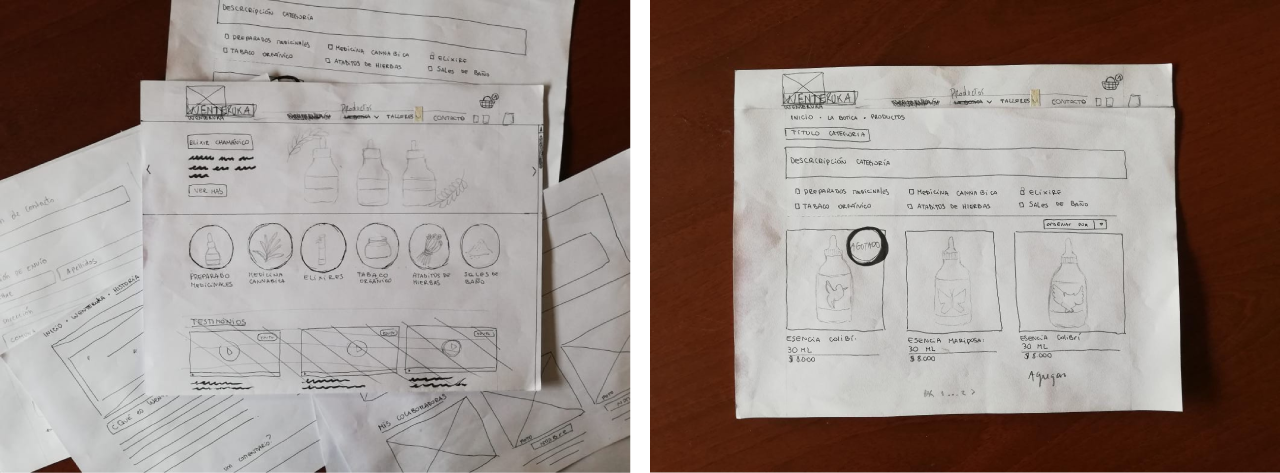 DESCRCRIPCIÓN CATEGORÍA
PREPARADOS MEDICINALES
MEDICINA CANNABICA
ELIXIRE
TABACO ORGÁNICO
ATADITOS DE HIERBAS
SALES DE BAÑO
WENTERUKA
WENTERUKA
Productos
TALLERES
CONTACTO
ELIXIR CHAMÁNICO
VER MÁS
PREPARADO MEDICINALES
MEDICINA CANNABICA
ELIXIRES
TABACO ORGÁNICO
ATADITOS DE HIERBAS
SALES DE BAÑO
TESTIMONIOS
INICIO · WENTERUKA · HISTORIA
MIS COLABORADORAS
WENTERUKA
WENTERUKA
Productos
TALLERES
CONTACTO
INICIO · LA BOTICA · PRODUCTOS
TÍTULO CATEGORÍA
DESCRCRIPCIÓN CATEGORÍA
PREPARADOS MEDICINALES
MEDICINA CANNABICA
ELIXIRE
TABACO ORGÁNICO
ATADITOS DE HIERBAS
SALES DE BAÑO
ORDENAR POR
AGOTADO
ESENCIA COLIBRÍ
30 ML
$8.000
ESENCIA MARIPOSA
30 ML
$8.000
ESENCIA COLIBRÍ
30 ML
$8.000
Agregar